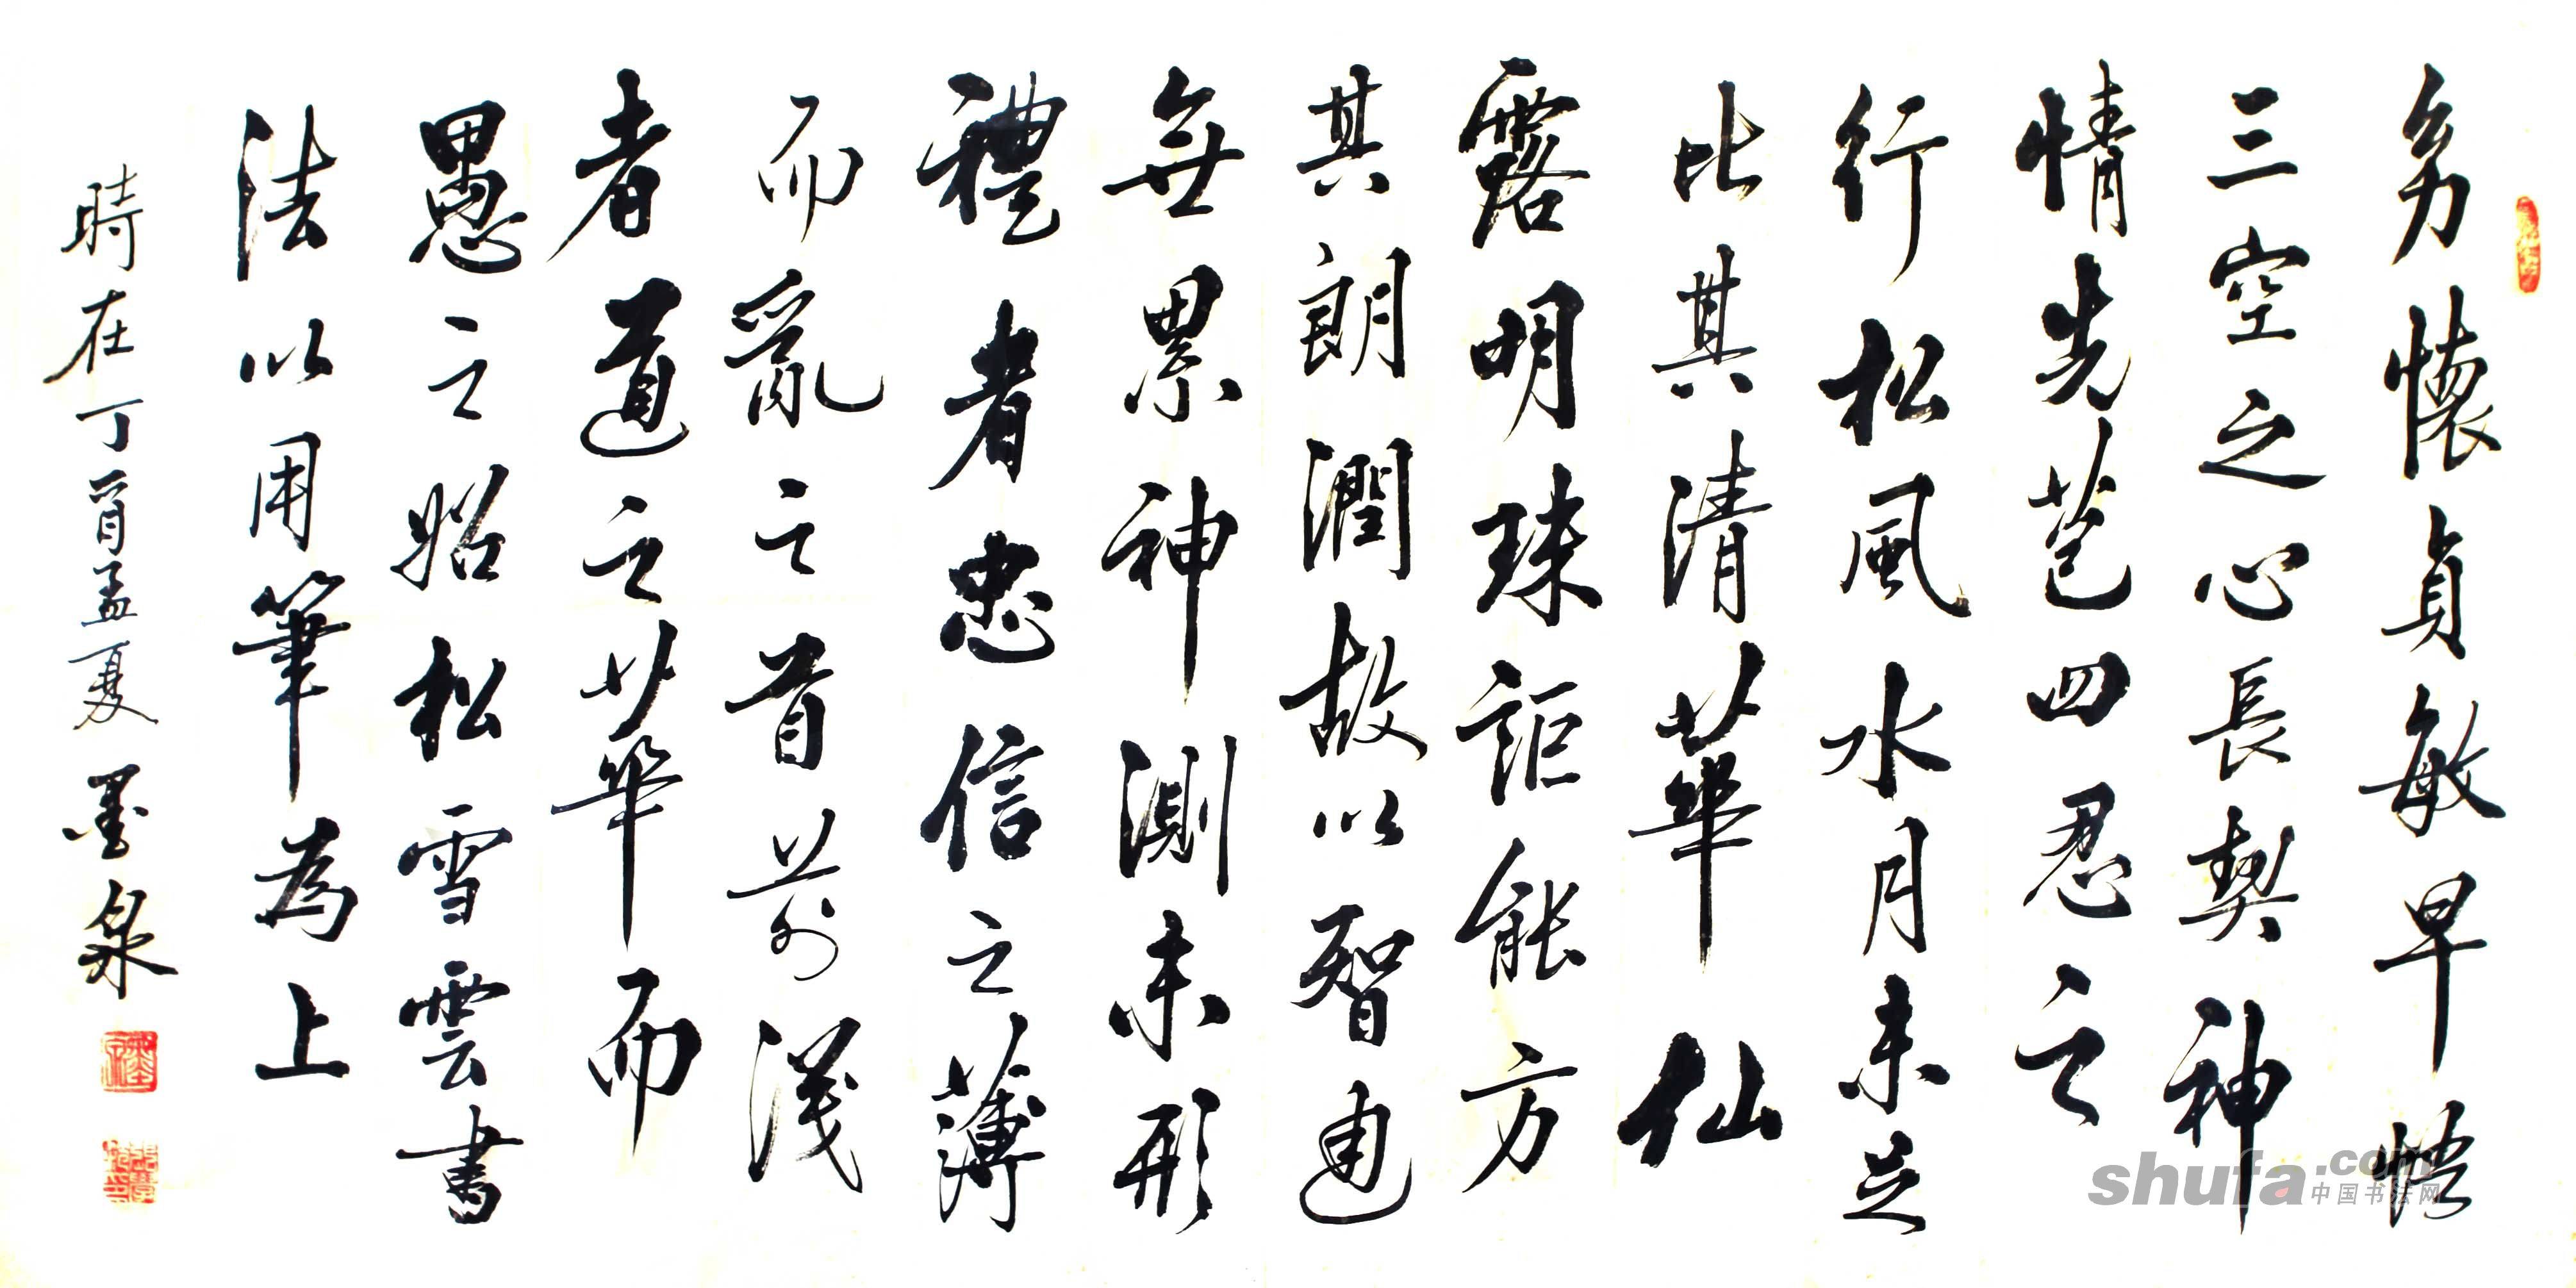 多懷貞敏早悟
三空之心長契神
情先苞四忍之
行松風水月未足
比其清華仙
露明珠詎能方
其朗潤故以智通
無累神測未形
禮者忠信之薄
而亂之首前淺
者道之華而
愚之始松雪雲書
法以用筆為上
時在丁酉孟夏墨泉
shufa.com
中国书法网